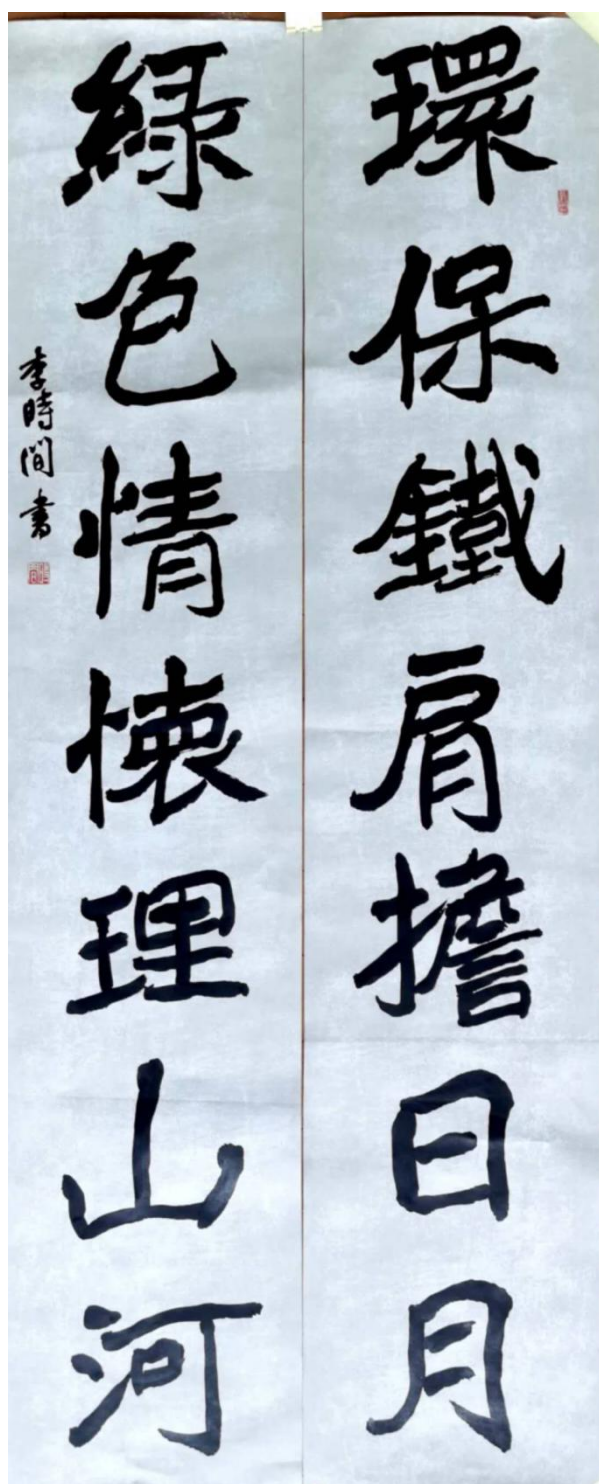 環保鐵肩擔日月
綠色情懷理山河
李時間書